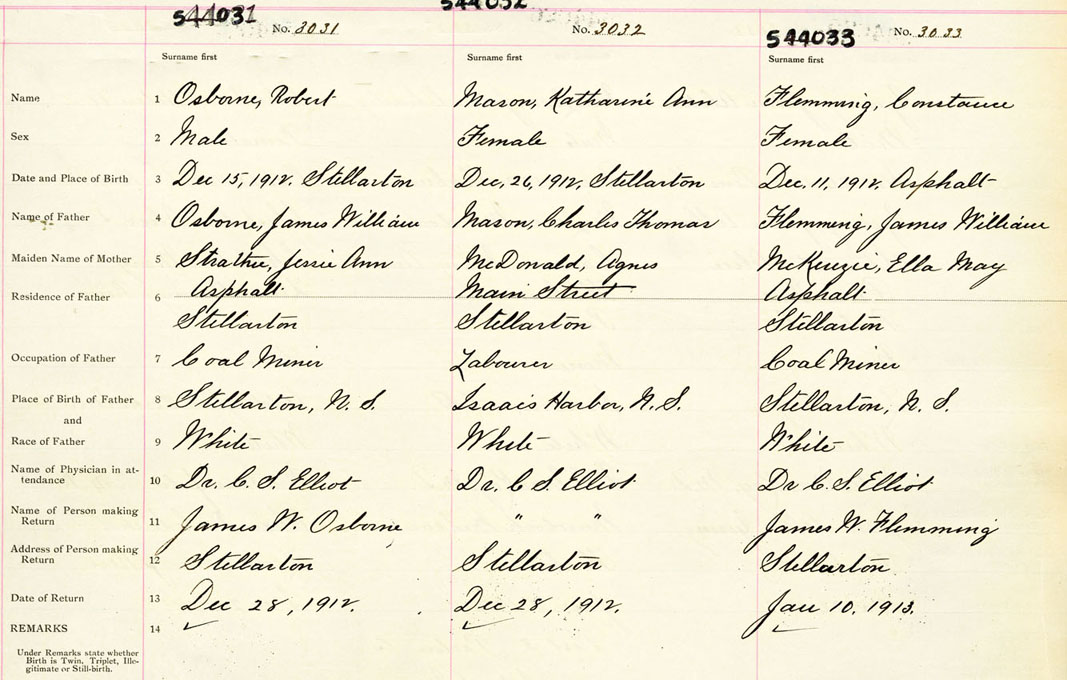 544031 No. 3031 544032 No. 3032 544033 No. 3033
Surname first Surname first Surname first
Name 1 Osborne, Robert Mason, Katharine Ann Flemming, Constance
Sex 2 Male Female Female
Date and Place of Birth 3 Dec 15, 1912. Stellarton Dec. 26, 1912, Stellarton Dec. 11, 1912, Asphalt
Name of Father 4 Osborne, James William Mason, Charles Thomas Flemming, James William
Maiden Name of Mother 5 Jessie Ann McDonald, Agnes McKenzie, Ella May
Residence of Father 6 Asphalt Main Street Asphalt
Stellarton Stellarton Stellarton
Occupation of Father 7 Coal Miner Labourer Coal Miner
Place of Birth of Father 8 Stellarton, N. S. Isaacs Harbor, N. S. Stellarton, N. S.
and
Race of Father 9 White White White
Name of Physician in at-
tendance 10 Dr. C. S. Elliot Dr. C S. Elliot Dr C. S. Elliot
Name of Person making
Return 11 James W. Osborne " " James W. Flemming
Address of Person making
Return 12 Stellarton Stellarton Stellarton
Date of Return 13 Dec 28, 1912. Dec 28, 1912. Jan 10. 1913.
REMARKS 14
Under Remarks state whether
Birth is Twin, Triplet, Ille-
gitimate or Still-birth.